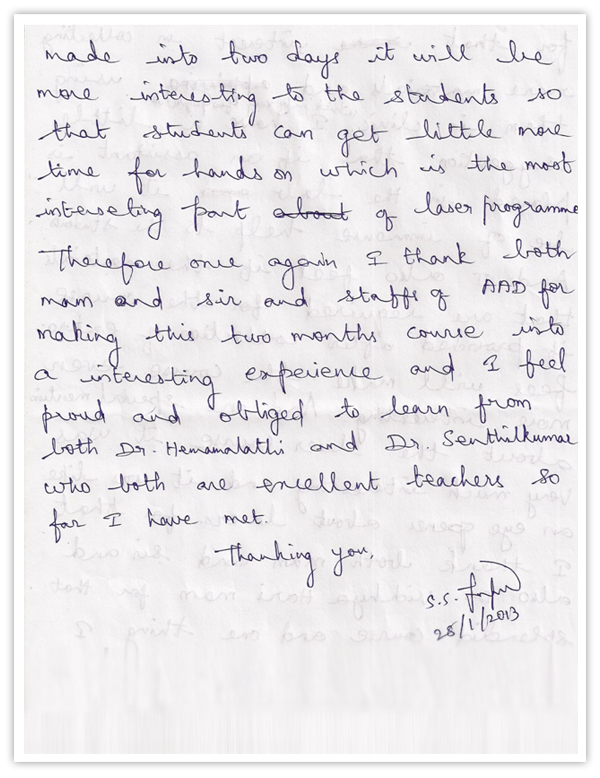 made into two days it will be
more interesting to the students so
that students can get little more
time for hands on which is the most
interseting part about of laser programme
Therefore once again I thank both
mam and sir and staffs of AAD for
making this two months course into
a interesting experience and I feel
proud and obliged to learn from
both Dr. Hemamalathi and Dr. Senthilkumar
who both are excellent teachers so
far I have met.
Thanking you,
S.S.
28/1/2013